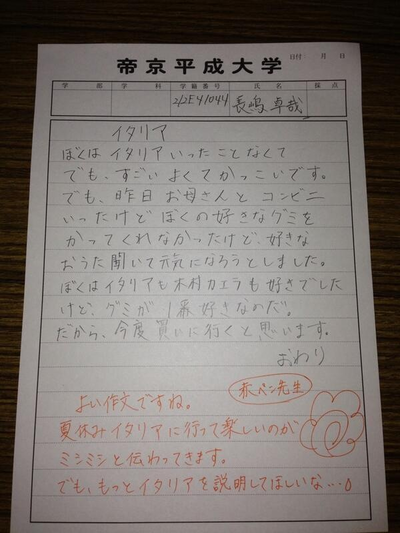 帝京平成大学
日付 月 日
学部 学科 学籍番号 氏名 採点
212E41044 長嶋卓哉
イタリア
ぼくはイタリアいったことなくて
でも、すごいよくてかっこいです。
でも、昨日お母さんとコンビニ
いったけどぼくの好きなグミを
かってくれなかったけど、好きな
おうた聞いて元気になろうとしました。
ぼくはイタリアも木村カエラも好きでした
けど、グミが1番好きなのだ。
だから、今度買いに行くと思います。
おわり
赤ペン先生
よい作文ですね。
夏休みイタリアに行って楽しいのが
ミシミシと伝わってきます。
でも、もっとイタリアを説明してほしいな…。